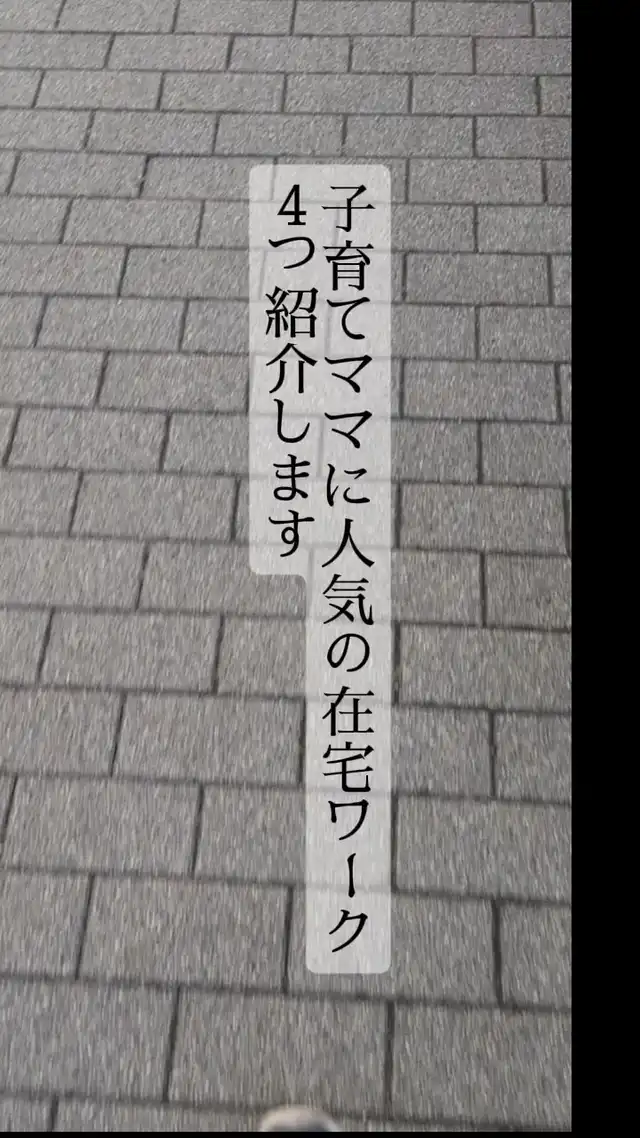 子育てママに人気の在宅ワーク
4つ紹介します